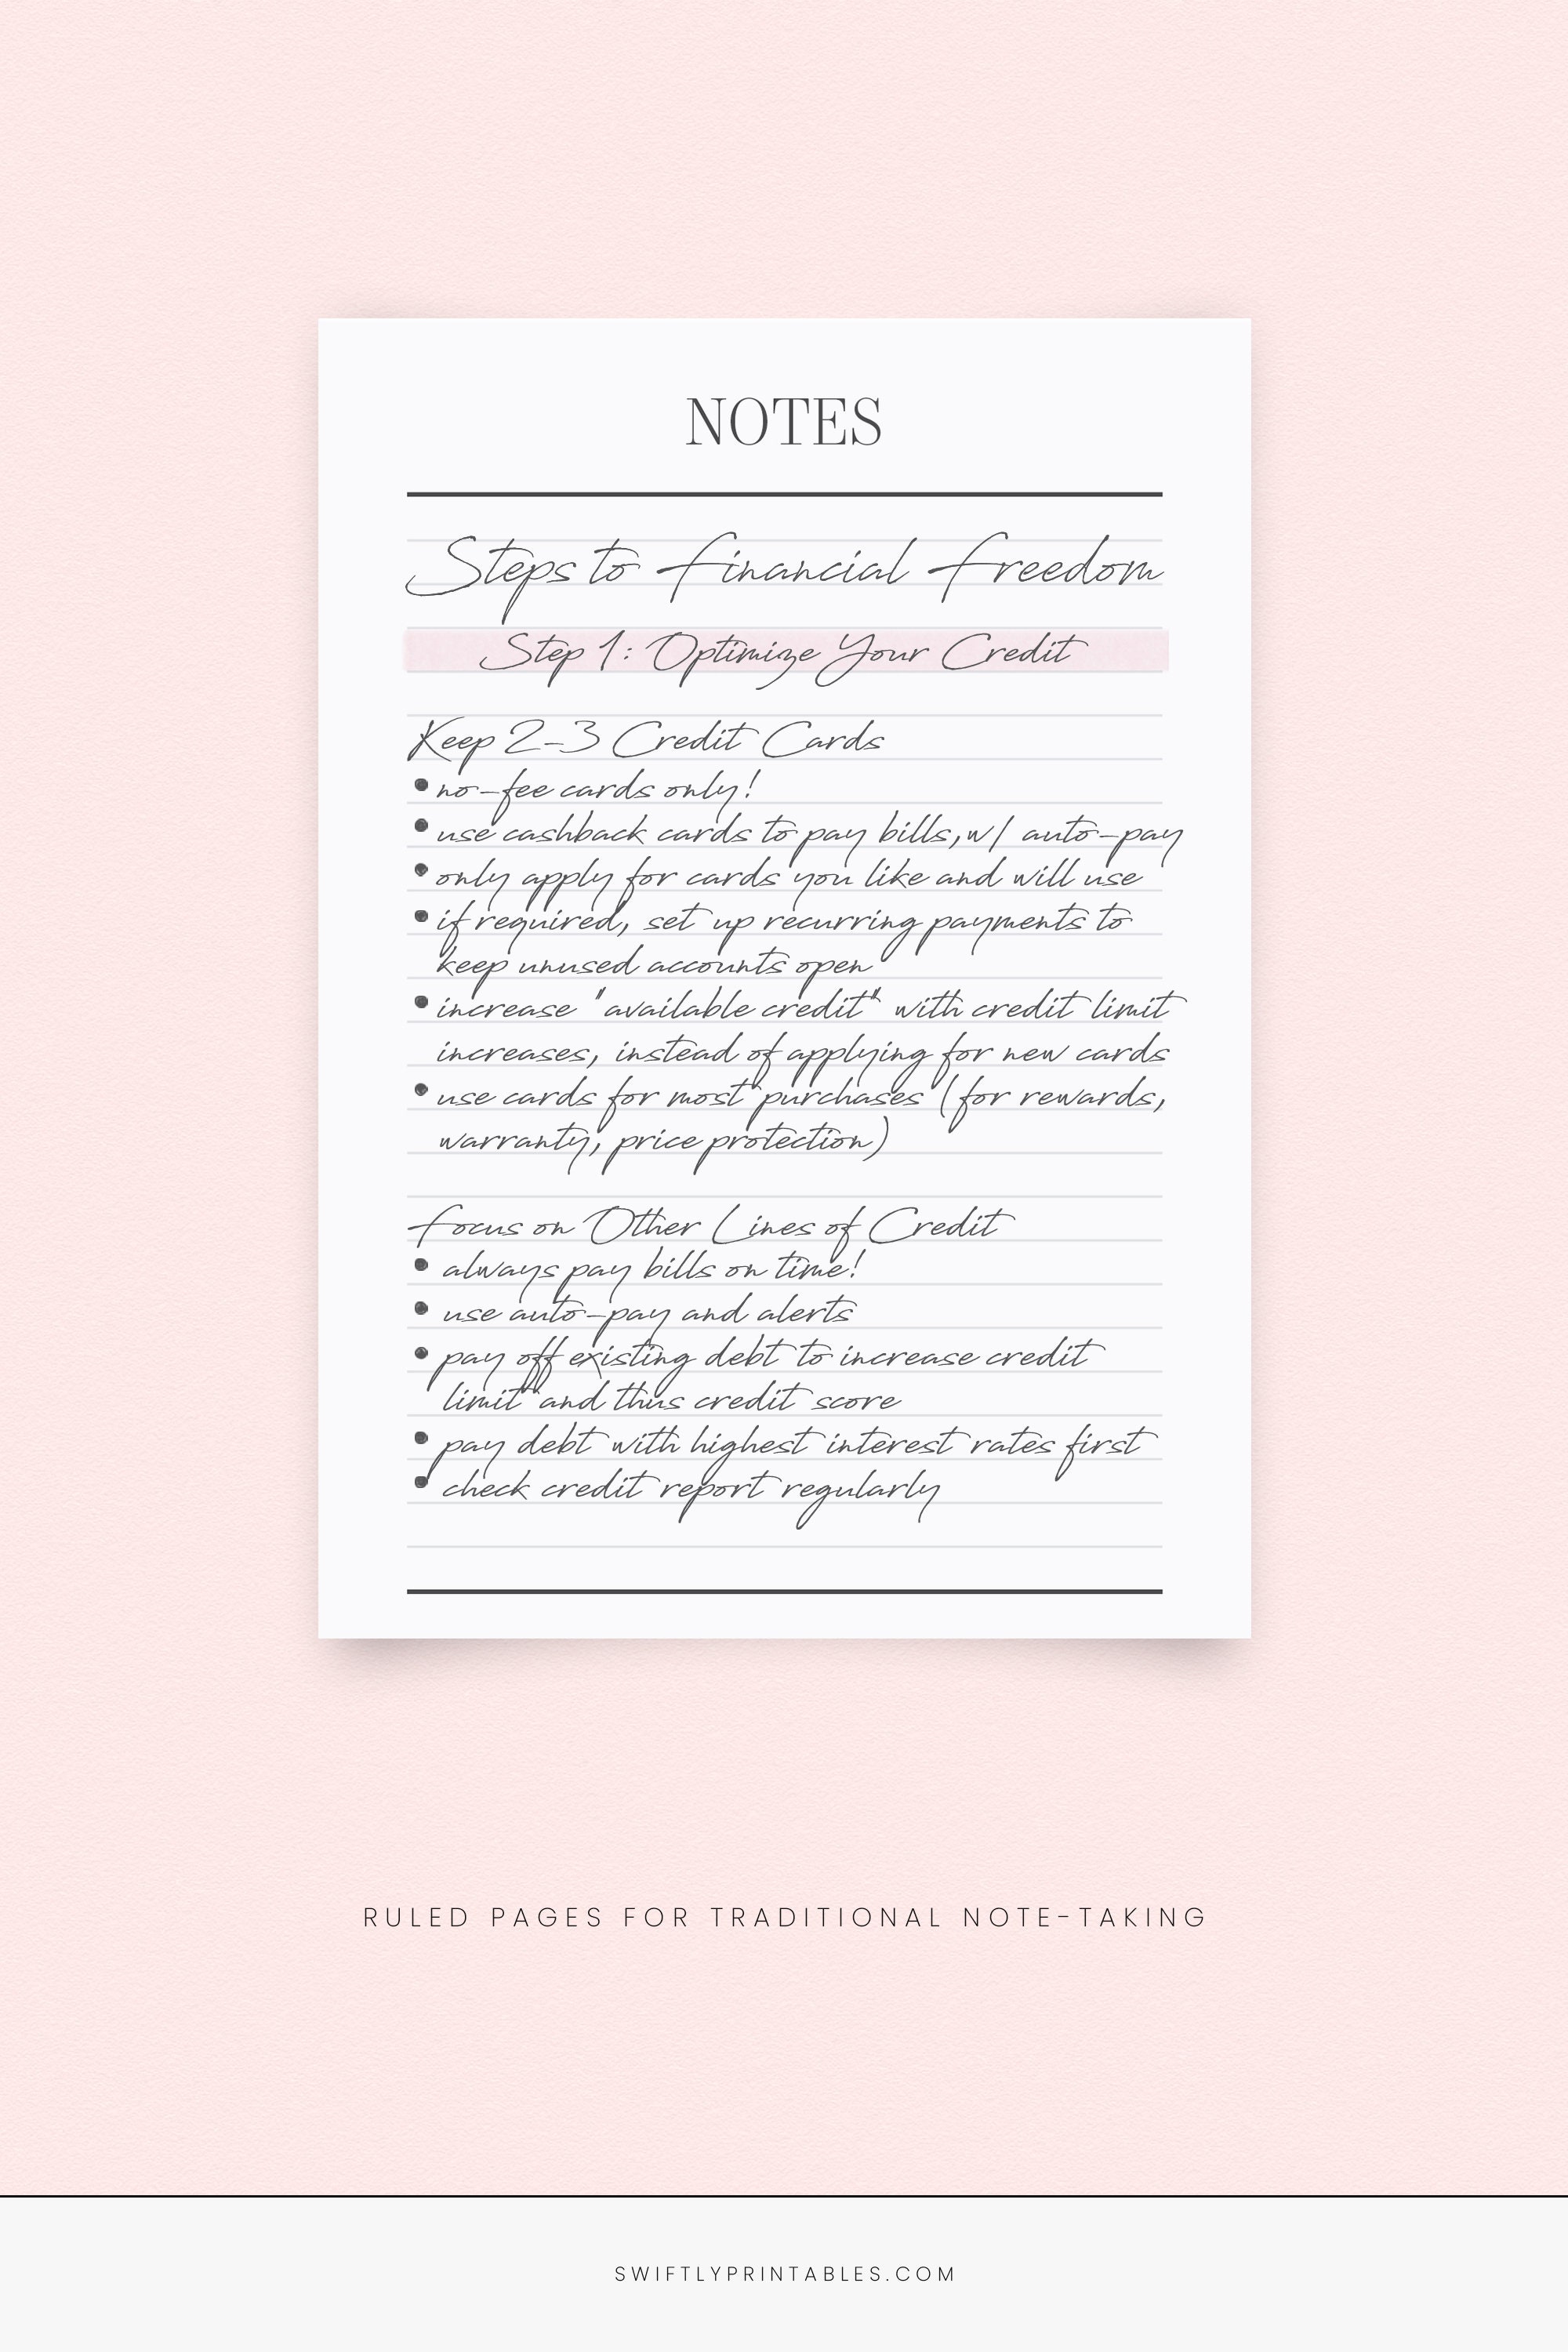 NOTES
Steps to Financial Freedom
Step 1: Optimize Your Credit
Keep 2-3 Credit Cards
• no-fee cards only!
• use cashback cards to pay bills, w/ auto-pay
• only apply for cards you like and will use
• if required, set up recurring payments to
keep unused accounts open
• increase "available credit" with credit limit
increases, instead of applying for new cards
• use cards for most purchases (for rewards,
warranty, price protection)
Focus on Other Lines of Credit
• always pay bills on time!
• use auto-pay and alerts
• pay off existing debt to increase credit
limit and thus credit score
• pay debt with highest interest rates first
• check credit report regularly
RULED PAGES FOR TRADITIONAL NOTE-TAKING
SWIFTLYPRINTABLES.COM